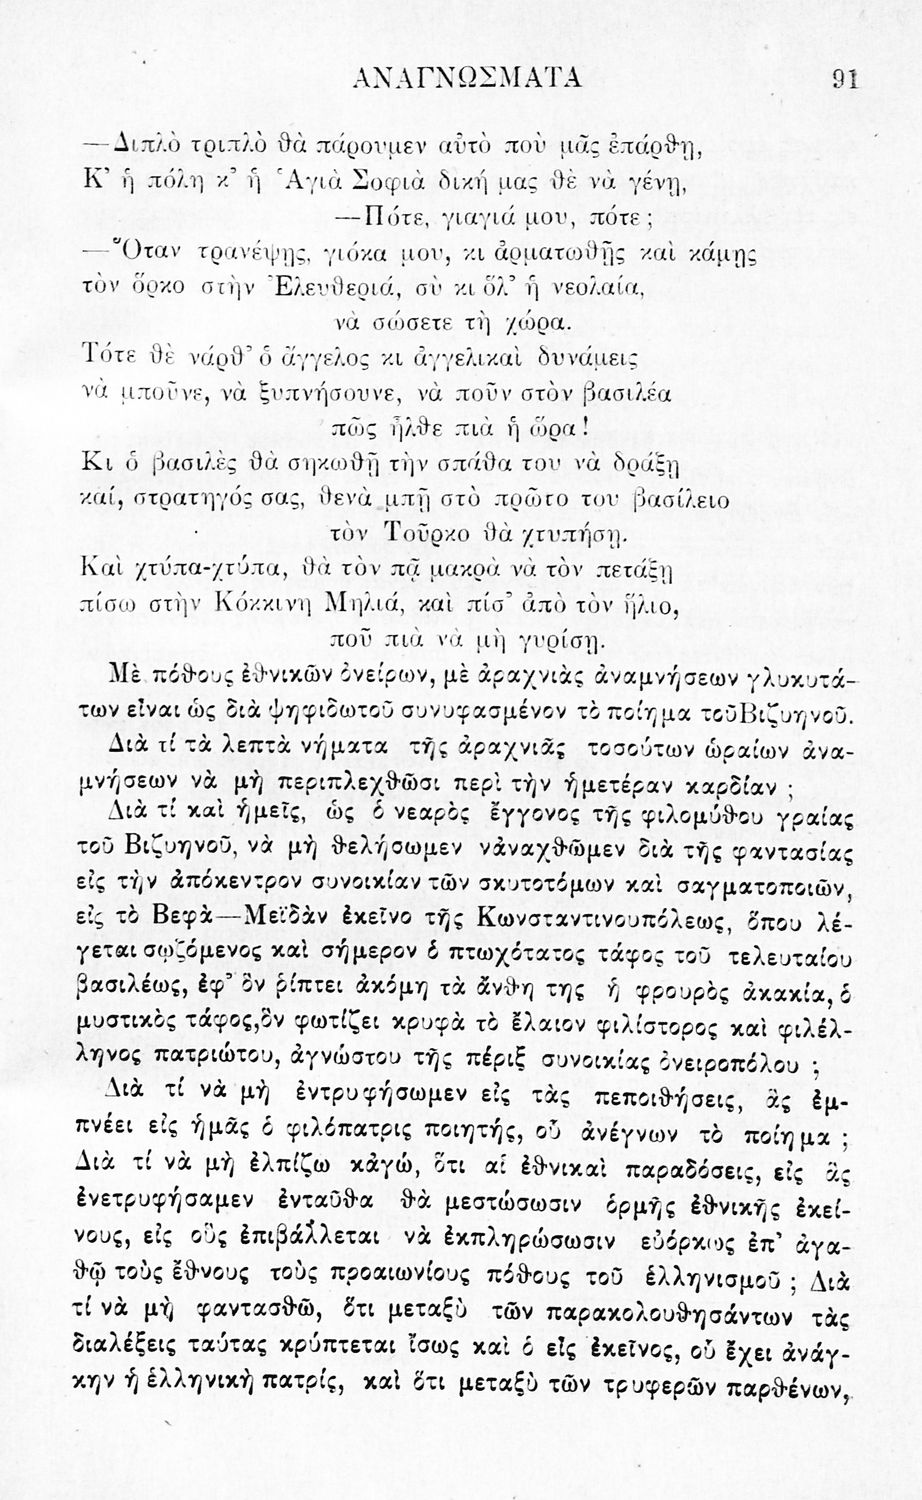 ΑΝΑΓΝΩΣΜΑΤΑ 91
—Διπλὸ τριπλὸ θὰ πάρουμεν αὐτὸ ποὺ μᾶς ἐπάρθη,
Κ' ἡ πόλη κ' ἡ Ἁγιὰ Σοφιὰ δική μας θὲ νὰ γένῃ,
—Πότε, γιαγιά μου, πότε ;
—Ὅταν τρανέψῃς, γιόκα μου, κι ἀρματωθῇς καὶ κάμῃς
τὸν ὅρκο στὴν Ἐλευθεριά, σὺ κι ὅλ' ἡ νεολαία,
νὰ σώσετε τὴ χώρα.
Τότε θὲ νάρθ' ὁ ἄγγελος κι ἀγγελικαὶ δυνάμεις
νὰ μποῦνε, νὰ ξυπνήσουνε, νὰ ποῦν στὸν βασιλέα
πῶς ἦλθε πιὰ ἡ ὥρα !
Κι ὁ βασιλὲς θὰ σηκωθῇ τὴν σπάθα του νὰ δράξῃ
καί, στρατηγός σας, θενὰ μπῇ στὸ πρῶτο του βασίλειο
τὸν Τοῦρκο θὰ χτυπήσῃ.
Καὶ χτύπα-χτύπα, θὰ τὸν πᾷ μακρὰ νὰ τὸν πετάξῃ
πίσω στὴν Κόκκινη Μηλιά, καὶ πίσ' ἀπὸ τὸν ἥλιο,
ποῦ πιὰ νὰ μὴ γυρίσῃ.
Μὲ πόθους ἐθνικῶν ὀνείρων, μὲ ἀραχνιὰς ἀναμνήσεων γλυκυτά-
των εἶναι ὡς διὰ ψηφιδωτοῦ συνυφασμένον τὸ ποίημα τοῦ Βιζυηνοῦ.
Διὰ τί τὰ λεπτὰ νήματα τῆς ἀραχνιᾶς τοσούτων ὡραίων ἀνα-
μνήσεων νὰ μὴ περιπλεχθῶσι περὶ τὴν ἡμετέραν καρδίαν ;
Διὰ τί καὶ ἡμεῖς, ὡς ὁ νεαρὸς ἔγγονος τῆς φιλομύθου γραίας
τοῦ Βιζυηνοῦ, νὰ μὴ θελήσωμεν νἀναχθῶμεν διὰ τῆς φαντασίας
εἰς τὴν ἀπόκεντρον συνοικίαν τῶν σκυτοτόμων καὶ σαγματοποιῶν,
εἰς τὸ Βεφὰ—Μεϊδὰν ἐκεῖνο τῆς Κωνσταντινουπόλεως, ὅπου λέ-
γεται σῳζόμενος καὶ σήμερον ὁ πτωχότατος τάφος τοῦ τελευταίου
βασιλέως, ἐφ' ὃν ῥίπτει ἀκόμη τὰ ἄνθη της ἡ φρουρὸς ἀκακία, ὁ
μυστικὸς τάφος, ὃν φωτίζει κρυφὰ τὸ ἔλαιον φιλίστορος καὶ φιλέλ-
ληνος πατριώτου, ἀγνώστου τῆς πέριξ συνοικίας ὀνειροπόλου ;
Διὰ τί νὰ μὴ ἐντρυφήσωμεν εἰς τὰς πεποιθήσεις, ἃς ἐμ-
πνέει εἰς ἡμᾶς ὁ φιλόπατρις ποιητής, οὗ ἀνέγνων τὸ ποίημα ;
Διὰ τί νὰ μὴ ἐλπίζω κἀγώ, ὅτι αἱ ἐθνικαὶ παραδόσεις, εἰς ἃς
ἐνετρυφήσαμεν ἐνταῦθα θὰ μεστώσωσιν ὁρμῆς ἐθνικῆς ἐκεί-
νους, εἰς οὓς ἐπιβάλλεται νὰ ἐκπληρώσωσιν εὐόρκως ἐπ' ἀγα-
θῷ τοὺς ἔθνους τοὺς προαιωνίους πόθους τοῦ ἑλληνισμοῦ ; Διὰ
τί νὰ μὴ φαντασθῶ, ὅτι μεταξὺ τῶν παρακολουθησάντων τὰς
διαλέξεις ταύτας κρύπτεται ἴσως καὶ ὁ εἷς ἐκεῖνος, οὗ ἔχει ἀνάγ-
κην ἡ ἑλληνικὴ πατρίς, καὶ ὅτι μεταξὺ τῶν τρυφερῶν παρθένων,